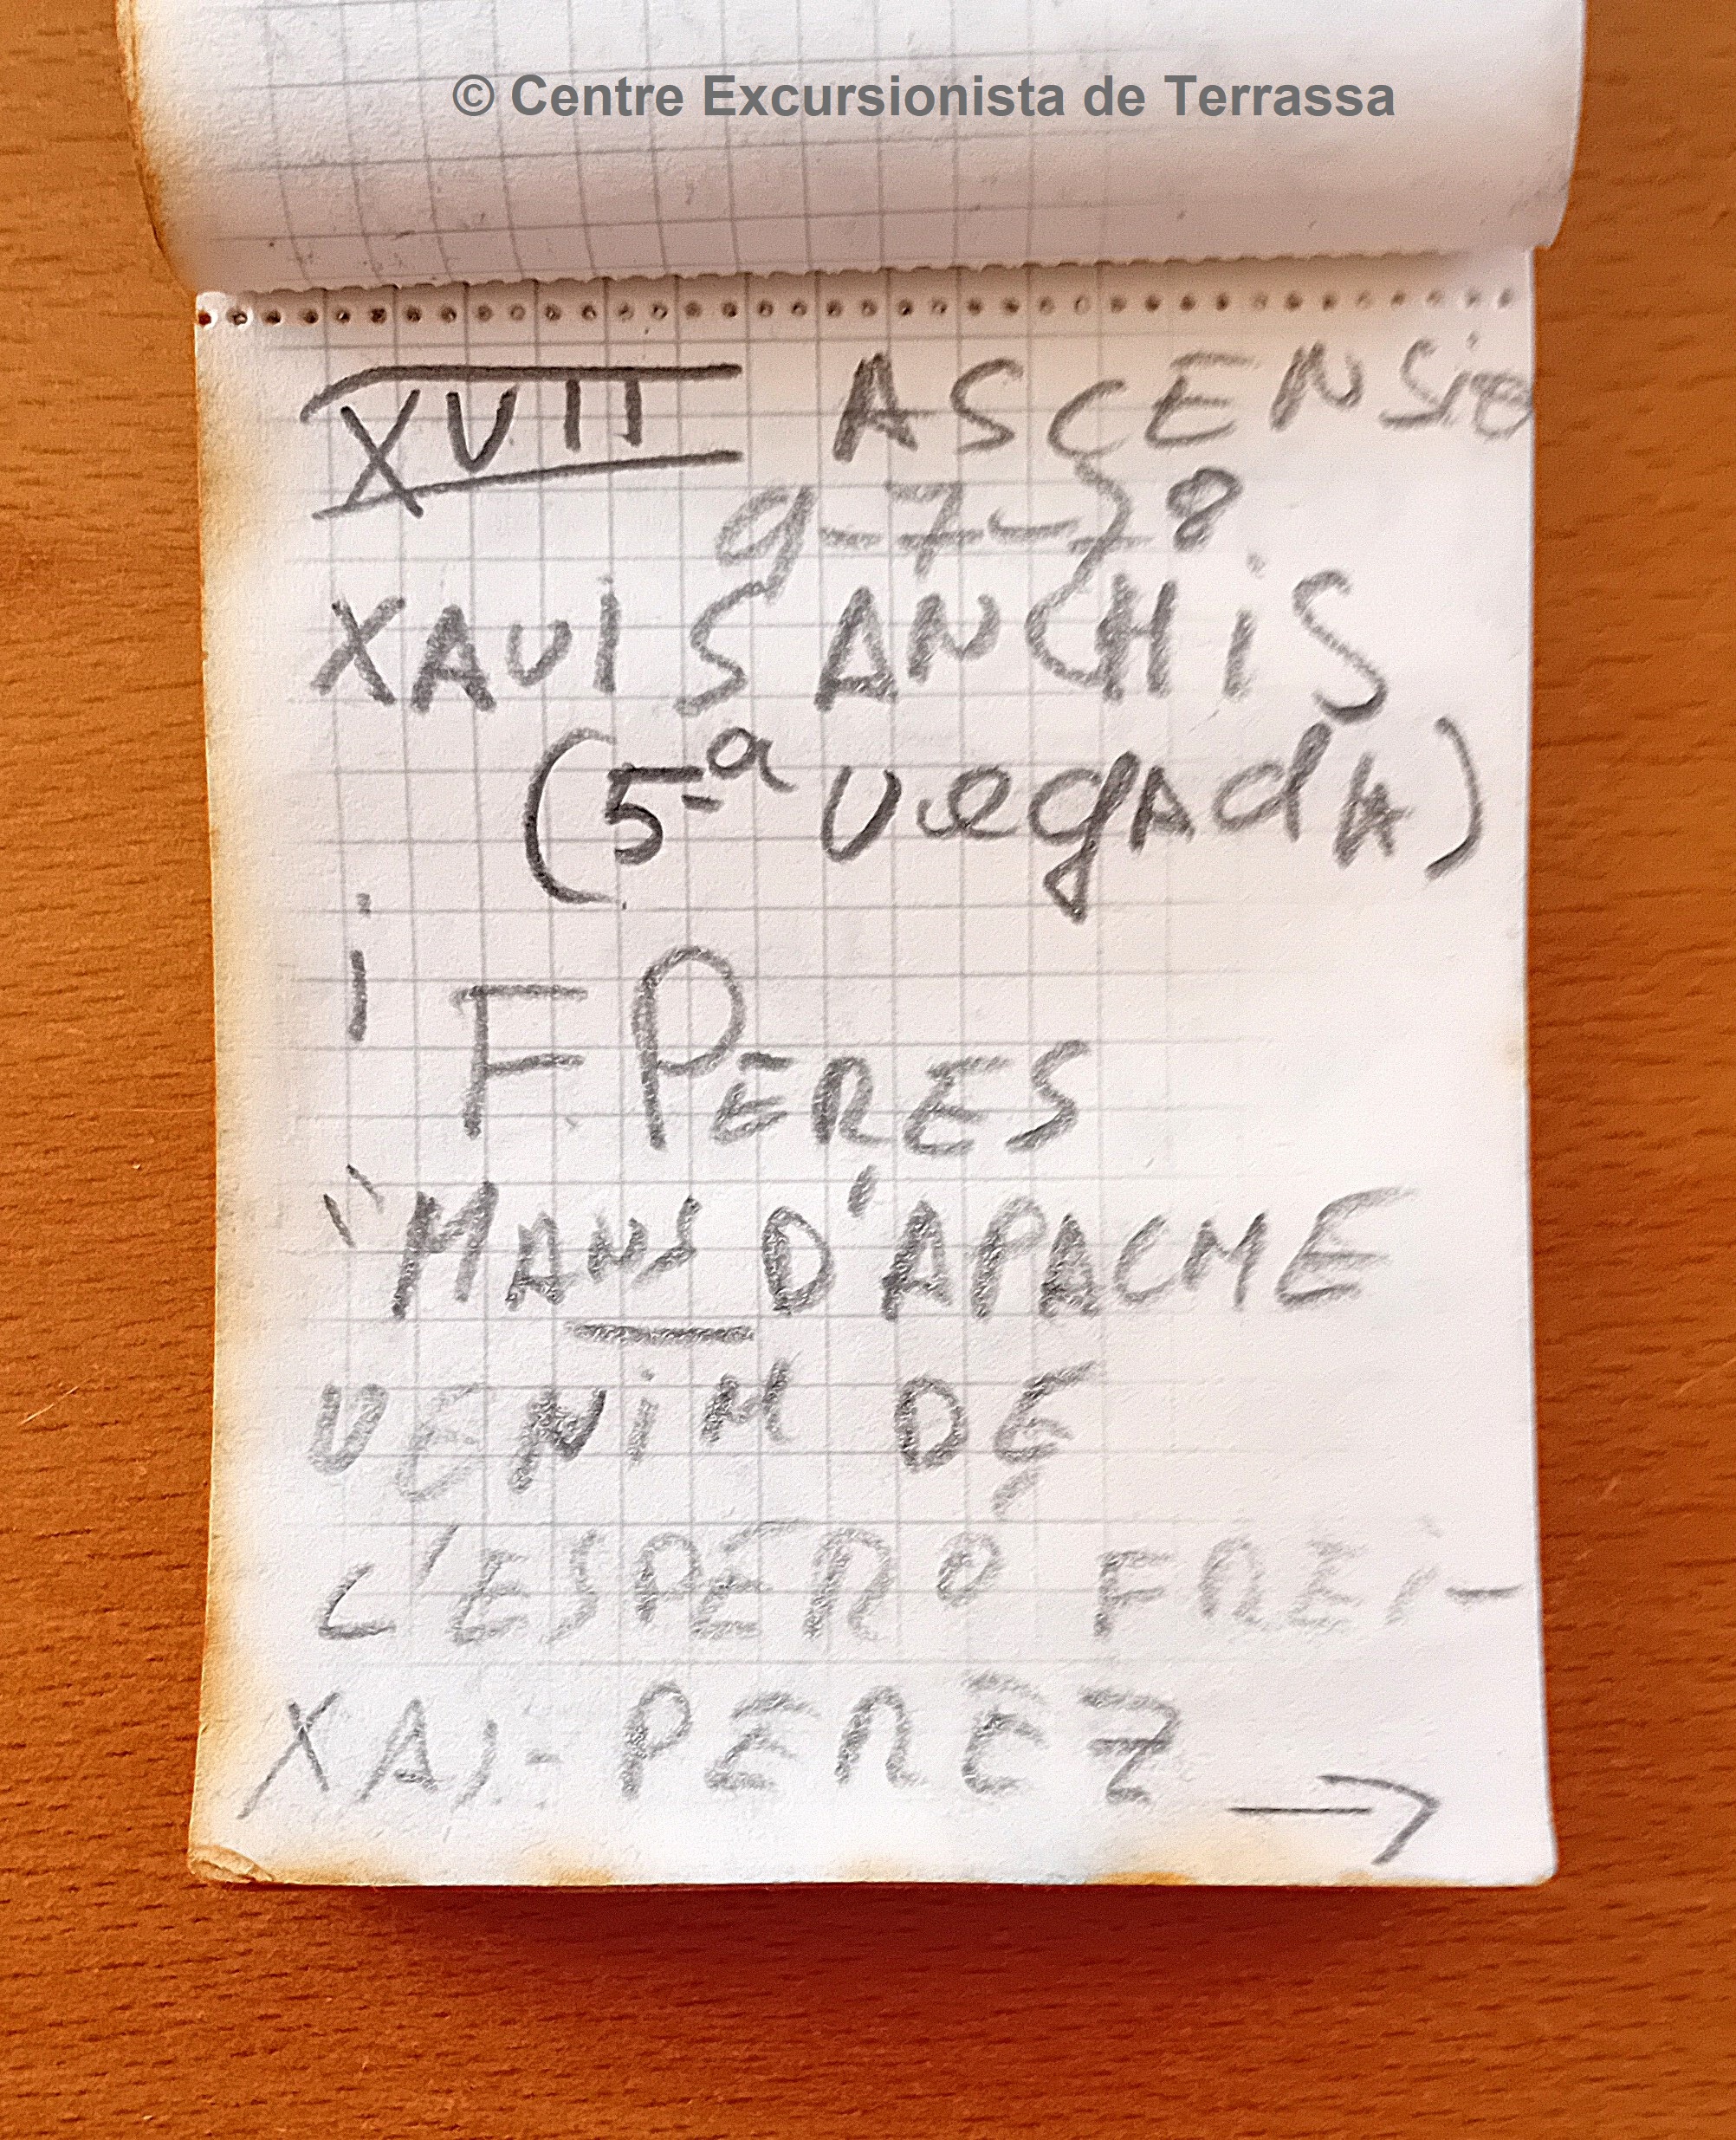 © Centre Excursionista de Terrassa
XVII ASCENSIO
9-7-78
XAVI SANCHIS
(5ª vegadA)
i
F. PERES
"MANS D'APACHE
VENIM DE
L'ESPERO FREI-
XAI-PEREZ →